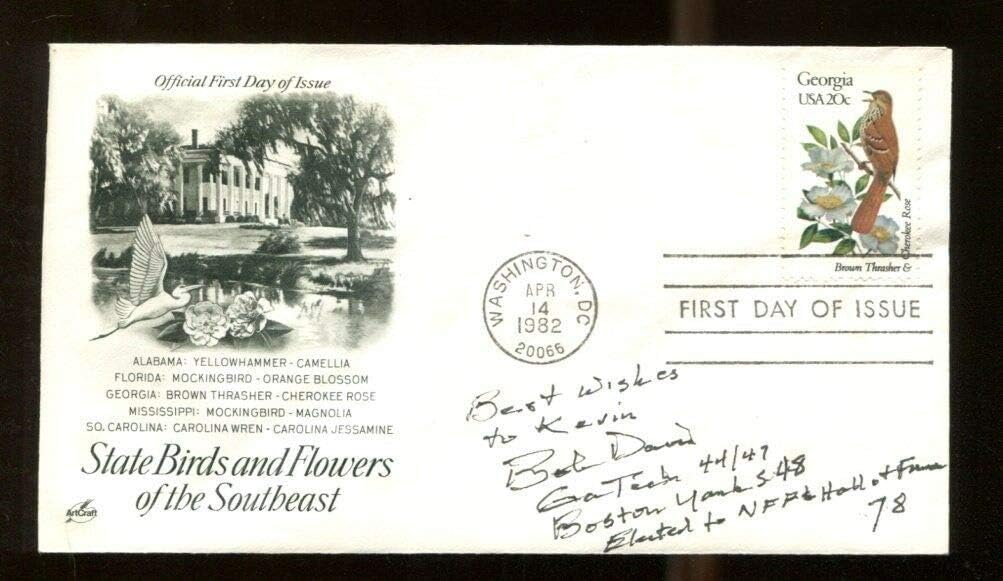 Official First Day of Issue
ALABAMA: YELLOWHAMMER - CAMELLIA
FLORIDA: MOCKINGBIRD - ORANGE BLOSSOM
GEORGIA: BROWN THRASHER - CHEROKEE ROSE
MISSISSIPPI: MOCKINGBIRD - MAGNOLIA
SO. CAROLINA: CAROLINA WREN - CAROLINA JESSAMINE
State Birds and Flowers
of the Southeast
ArtCraft
Georgia
USA 20c
Cherokee Rose
Brown Thrasher &
WASHINGTON, DC
APR
14
1982
20066
FIRST DAY OF ISSUE
Best Wishes
to Kevin
Bob Davis
Ga Tech 44/47
Boston Yanks 48
Elected to NFF & Hall of Fame
78